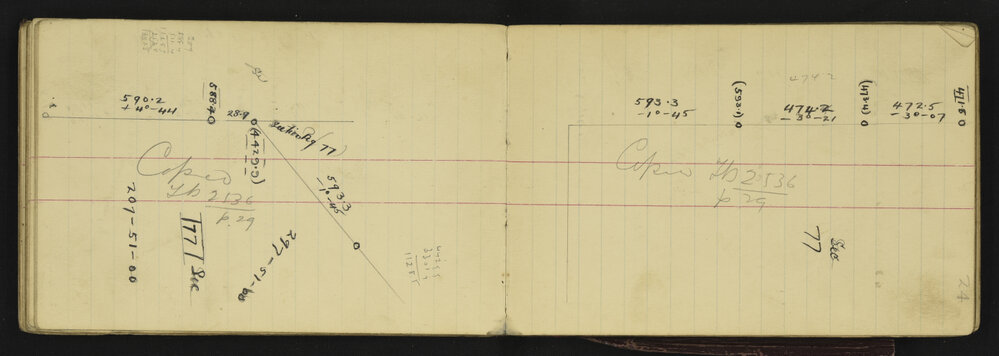 590.2
+ 4°-44
588.20
28.9
(4425.3)
section Pg 77)
593.3
-1°-45
Copied
Fb 2536
p. 29
207-51-00
77 Sec
297-51-00
593.3
-1°-45
(593.1) 0
474.2
474.2
-3°-21
(473.4) 0
472.5
-3°-07
471.80
Copied Fb 2536
p. 29
Sec
77
24